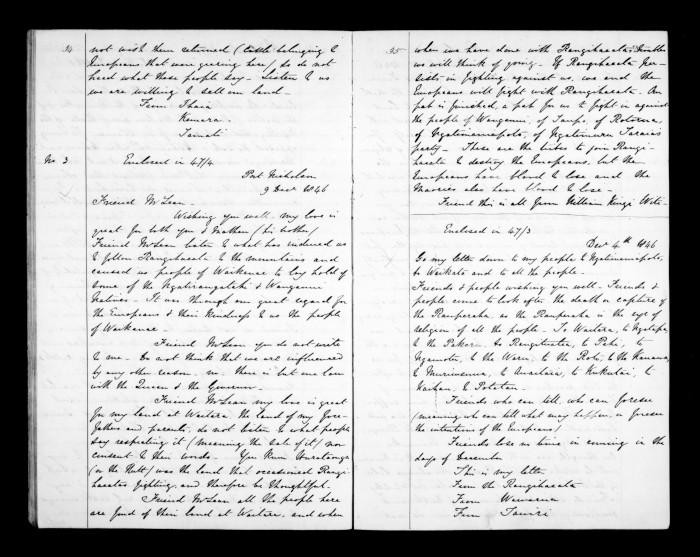 34
not wish them returned (cattle belonging to
Europeans that were grazing here) so do not
heed what these people say - Listen to us
we are willing to sell our land -
From Ihaia
Kumara.
Tamati
No 3
Enclosed in 47/4
Port Nicholson
9 Decr 1846
Friend McLean -
Wishing you well, my love is
great for both you & Nathan (his brother)
Friend McLean listen to what has induced us
to follow Rangihaeata to the mountains and
caused us people of Waikanae to lay hold of
some of the Ngatirangatahi & Wanganui
Natives - It was through our great regard for
the Europeans & their kindness to us the people
of Waikanae -
Friend McLean you do not write
to me - Do not think that we are influenced
by any other reason, no - there is but one law
with the Queen & the Governor -
Friend McLean my love is great
for my land at Waitara, the land of my fore-
fathers and parents, do not listen to what people
say respecting it (meaning the sale of it) nor
consent to their words - You know Heretaonga
(or the Hutt) was the land that occasioned Rangi-
haeatas fighting, and therefore be thoughtful.
Friend McLean all the people here
are fond of their land at Waitara, and when
35
when we have done with Rangihaeatas trouble
we will think of going - If Rangihaeata per-
sists in fighting against us, we and the
Europeans will fight with Rangihaeata - Our
pah is finished, a pah for us to fight in against
the people of Wanganui, of Taupo, of Rotorua,
of Ngatimaniapoto, of
party - These are the tribes to join Rangi-
haeata to destroy the Europeans, but the
Europeans have blood to lose and the
Maories also have blood to lose -
Friend this is all from William Kingi Witi -
Enclosed in 47/3
Decr 4th 1846
Go my letter down to my people to Ngatimaniapoto,
to Waikato and to all the people -
Friends & people wishing you well - Friends &
people come to look after the death or capture of
the Rauparaha, as the Rauparaha is the eye of
religion of all the people - To Waitara, to
to the Pakaru, to Rangituatea, to Pehi, to
Ngamotu, to the Waru, to the Roto, to the Kanawa,
to Muriwhenua, to to Kukutai, to
to Potatau -
Friends who can tell, who can foresee
(meaning who can tell what may happen, or foresee
the intentions of the Europeans)
Friends lose no time in coming in the
days of December
This is my letter
From the Rangihaeata
From
From Tawiri